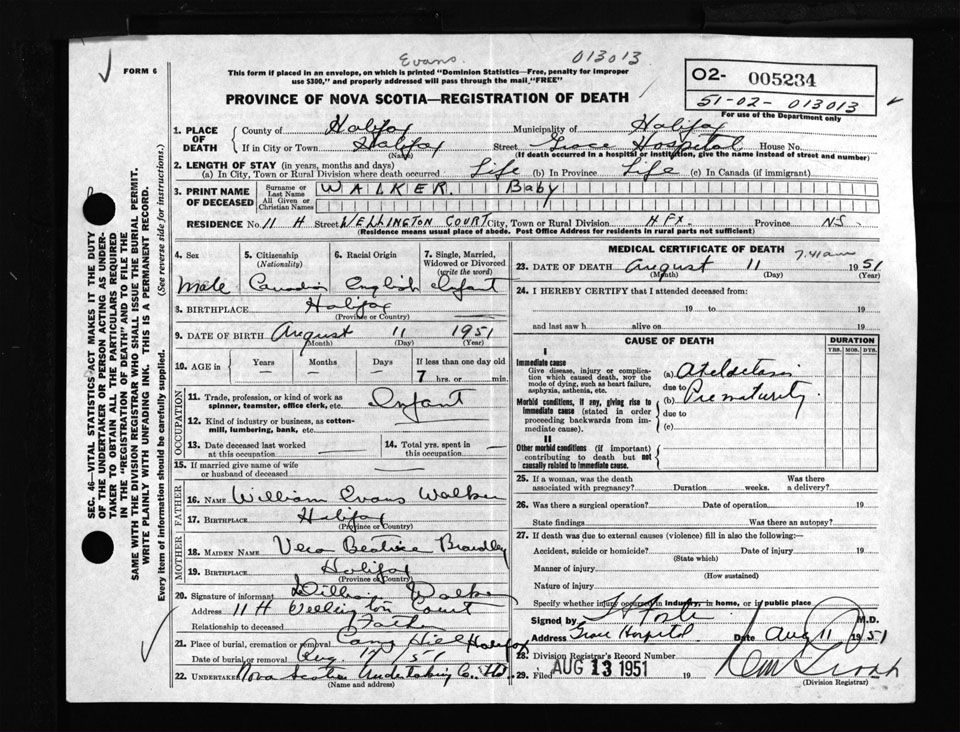 Evans. 013013
FORM 6
This form if placed in an envelope, on which is printed "Dominion Statistics—Free, penalty for improper
use $300," and properly addressed will pass through the mail "FREE"
O2- 005234
51-02- 013013
For use of the Department only
PROVINCE OF NOVA SCOTIA—REGISTRATION OF DEATH
1. PLACE OF DEATH County of Halifax Municipality of Halifax
If in City or Town Halifax (Name) Street Grace Hospital House No.
(If death occurred in a hospital or institution, give the name instead of street and number)
2. LENGTH OF STAY (in years, months and days)
(a) In City, Town or Rural Division where death occurred Life (b) In Province Life (c) In Canada (if immigrant)
3. PRINT NAME OF DECEASED Surname or Last Name WALKER. Baby
All Given or Christian Names
RESIDENCE No. 11 H Street WELLINGTON COURT City, Town or Rural Division HFX. Province NS.
(Residence means usual place of abode. Post Office Address for residents in rural parts not sufficient)
4. Sex 5. Citizenship (Nationality) 6. Racial Origin 7. Single, Married, Widowed or Divorced (write the word)
Male Canadian English Infant
8. BIRTHPLACE Halifax
(Province or Country)
9. DATE OF BIRTH August 11 1951
(Month) (Day) (Year)
10. AGE in Years Months Days If less than one day old
7 hrs. or min.
OCCUPATION
11. Trade, profession, or kind of work as spinner, teamster, office clerk, etc. Infant
12. Kind of industry or business, as cotton-mill, lumbering, bank, etc.
13. Date deceased last worked at this occupation 14. Total yrs. spent in this occupation
15. If married give name of wife or husband of deceased
FATHER
16. NAME William Evans Walker
17. BIRTHPLACE Halifax
(Province or Country)
MOTHER
18. MAIDEN NAME Vera Beatrice
19. BIRTHPLACE Halifax
(Province or Country)
20. Signature of informant William Walker
Address 11 H Wellington Court
Relationship to deceased Father
21. Place of burial, cremation or removal Camp Hill Halifax
Date of burial or removal Aug. 1951
22. Undertaker Nova Scotia Undertaking Co. Ltd.
(Name and address)
MEDICAL CERTIFICATE OF DEATH
7.41 am
23. DATE OF DEATH August 11 1951
(Month) (Day) (Year)
24. I HEREBY CERTIFY that I attended deceased from:
19 to 19
and last saw h alive on 19
CAUSE OF DEATH DURATION
YRS. MOS. DYS.
I
Immediate cause
Give disease, injury or complication which caused death, NOT the mode of dying, such as heart failure, asphyxia, asthenia, etc.
(a)
due to
Morbid conditions, if any, giving rise to immediate cause (stated in order proceeding backwards from immediate cause).
(b) Prematurity.
due to
(c)
II
Other morbid conditions (if important) contributing to death but not causally related to immediate cause.
25. If a woman, was the death associated with pregnancy? Duration weeks. Was there a delivery?
26. Was there a surgical operation? Date of operation 19
State findings Was there an autopsy?
27. If death was due to external causes (violence) fill in also the following:—
Accident, suicide or homicide? Date of injury 19
(State which)
Manner of injury
(How sustained)
Nature of injury
Specify whether injury occurred in industry, in home, or in public place
Signed by M.D.
Address Grace Hospital Date Aug 11 1951
28. Division Registrar's Record Number
29. Filed AUG 13 1951 19
(Division Registrar)
SEC. 46—VITAL STATISTICS ACT MAKES IT THE DUTY
OF THE UNDERTAKER OR PERSON ACTING AS UNDERTAKER
TO OBTAIN ALL THE PARTICULARS REQUIRED
IN THE "REGISTRATION OF DEATH" AND TO FILE THE
SAME WITH THE DIVISION REGISTRAR WHO SHALL ISSUE THE BURIAL PERMIT.
WRITE PLAINLY WITH UNFADING INK. THIS IS A PERMANENT RECORD.
Every item of information should be carefully supplied. (See reverse side for instructions.)